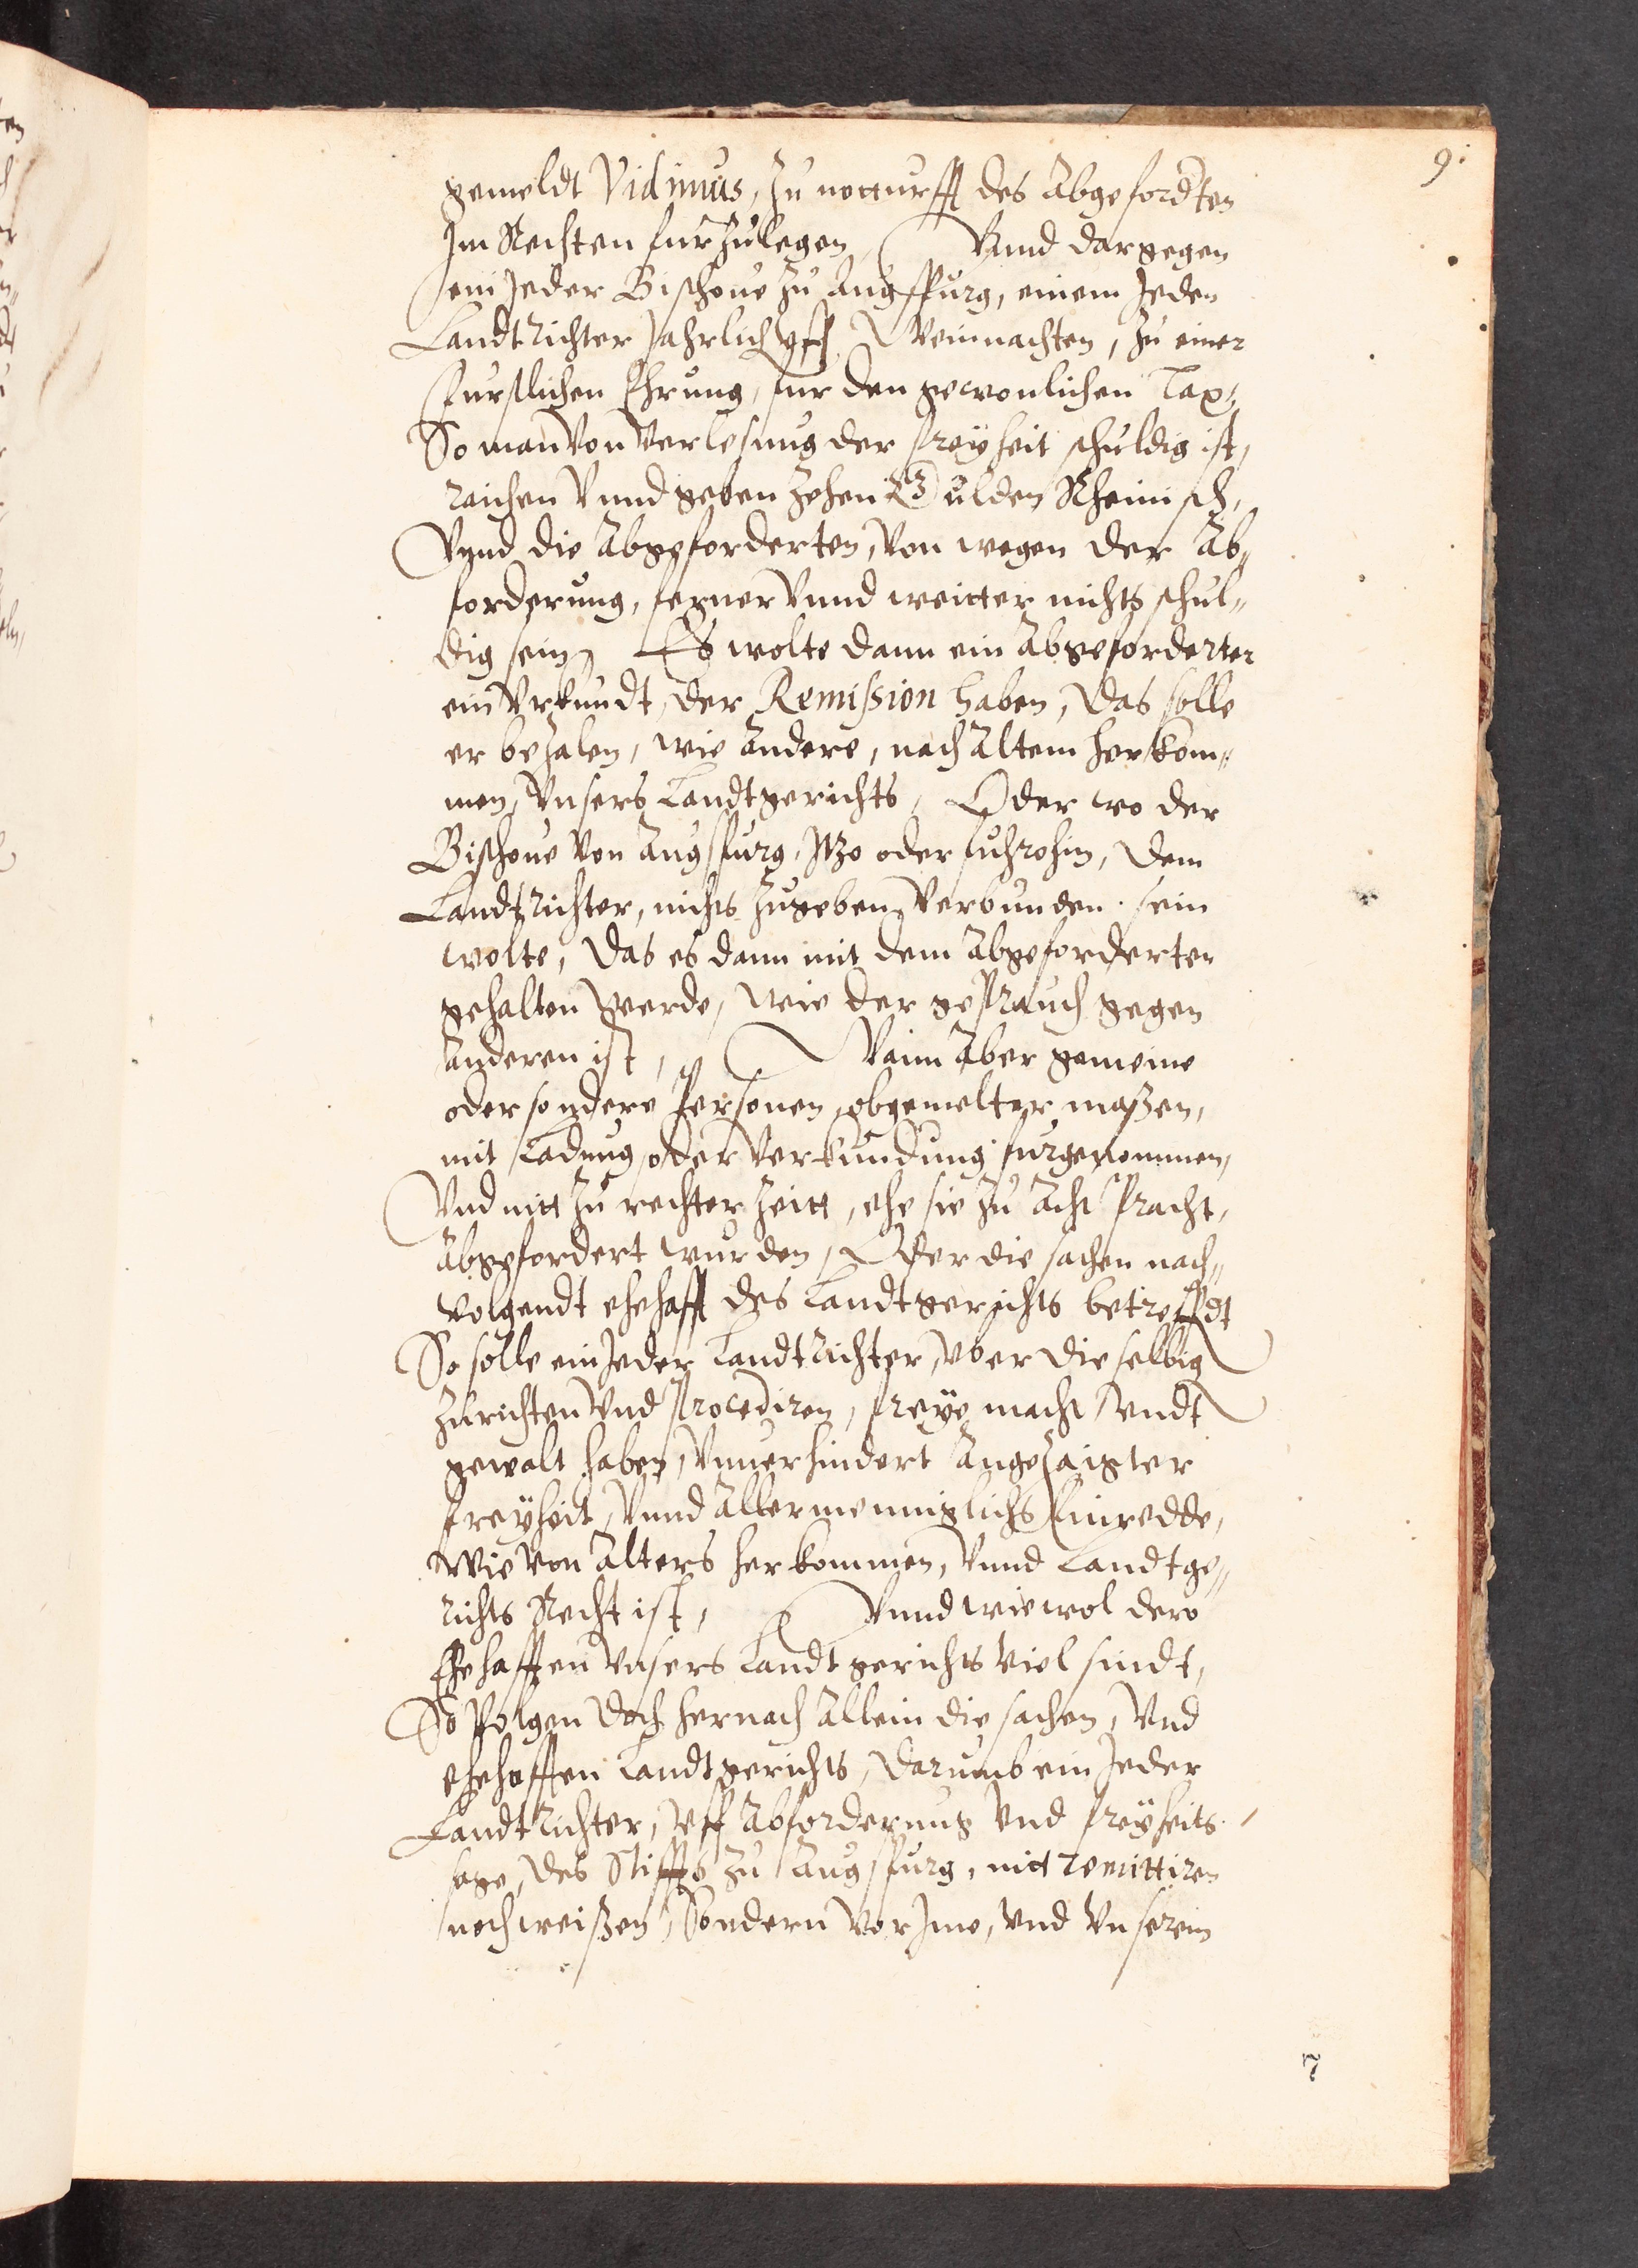 9.
gemeldt Vidimus, zu notturfft des Abgefordten
Im Rechten furzulegen, Vnnd dargegen
ein Jeder Bischoue zu Augspurg, einem Jeden
Landtrichter Jahrlich vff Weinnachten, zu einer
furstlichen Ehrung, fur den gewonlichen Tax,
So man von verlesung der freyheit schuldig ist,
raichen vnnd geben zehen Gulden Rheinisch,
Vnnd die Abgeforderten, von wegen der Ab„
forderung, ferner vnnd weitter nichts schul„
dig sein, Es wolte dann ein Abgeforderter
ein vrkundt, der Remission haben, das solle
er bezalen, wie andere, nach altem herkom„
men, vnsers Landtgerichts, Oder wo der
Bischoue von Augspurg, Itzo oder fuhrohin, dem
Landtrichter, nichts zugeben verbunden sein
wolte, das es dann mit dem Abgeforderten
gehalten werde, wie der geprauch gegen
anderen ist, Wann aber gemeine
oder sondere Personen, obgemelter maßen,
mit Ladung oder verkundung furgenommen,
Vnd nitt zu rechter zeitt, ehe sie zu Acht pracht,
abgefordert wurden, Oder die sachen nach„
volgendt ehehafft des Landtgerichts betrefdt
So solle ein Jeder Landtrichter, vber dieselbig
zurichten vnd procediren, freye macht vndt
gewalt haben, vnuerhindert angezaigter
freyheit, vnnd allermenniglichs Einredde,
wie von alters herkommen, vnnd Landtge„
richts Recht ist, Vnnd wiewol dero
Ehehafften vnsers Landtgerichts viel sindt,
So volgen doch hernach allein die sachen, vnd
ehehafften Landtgerichts, darumb ein Jeder
Landtrichter, vff abforderung vnd freyheits
sage, des Stiffts zu Augspurg, nitt remittiren
noch weißen, Sondern vor Ime, vnd vnserem
7